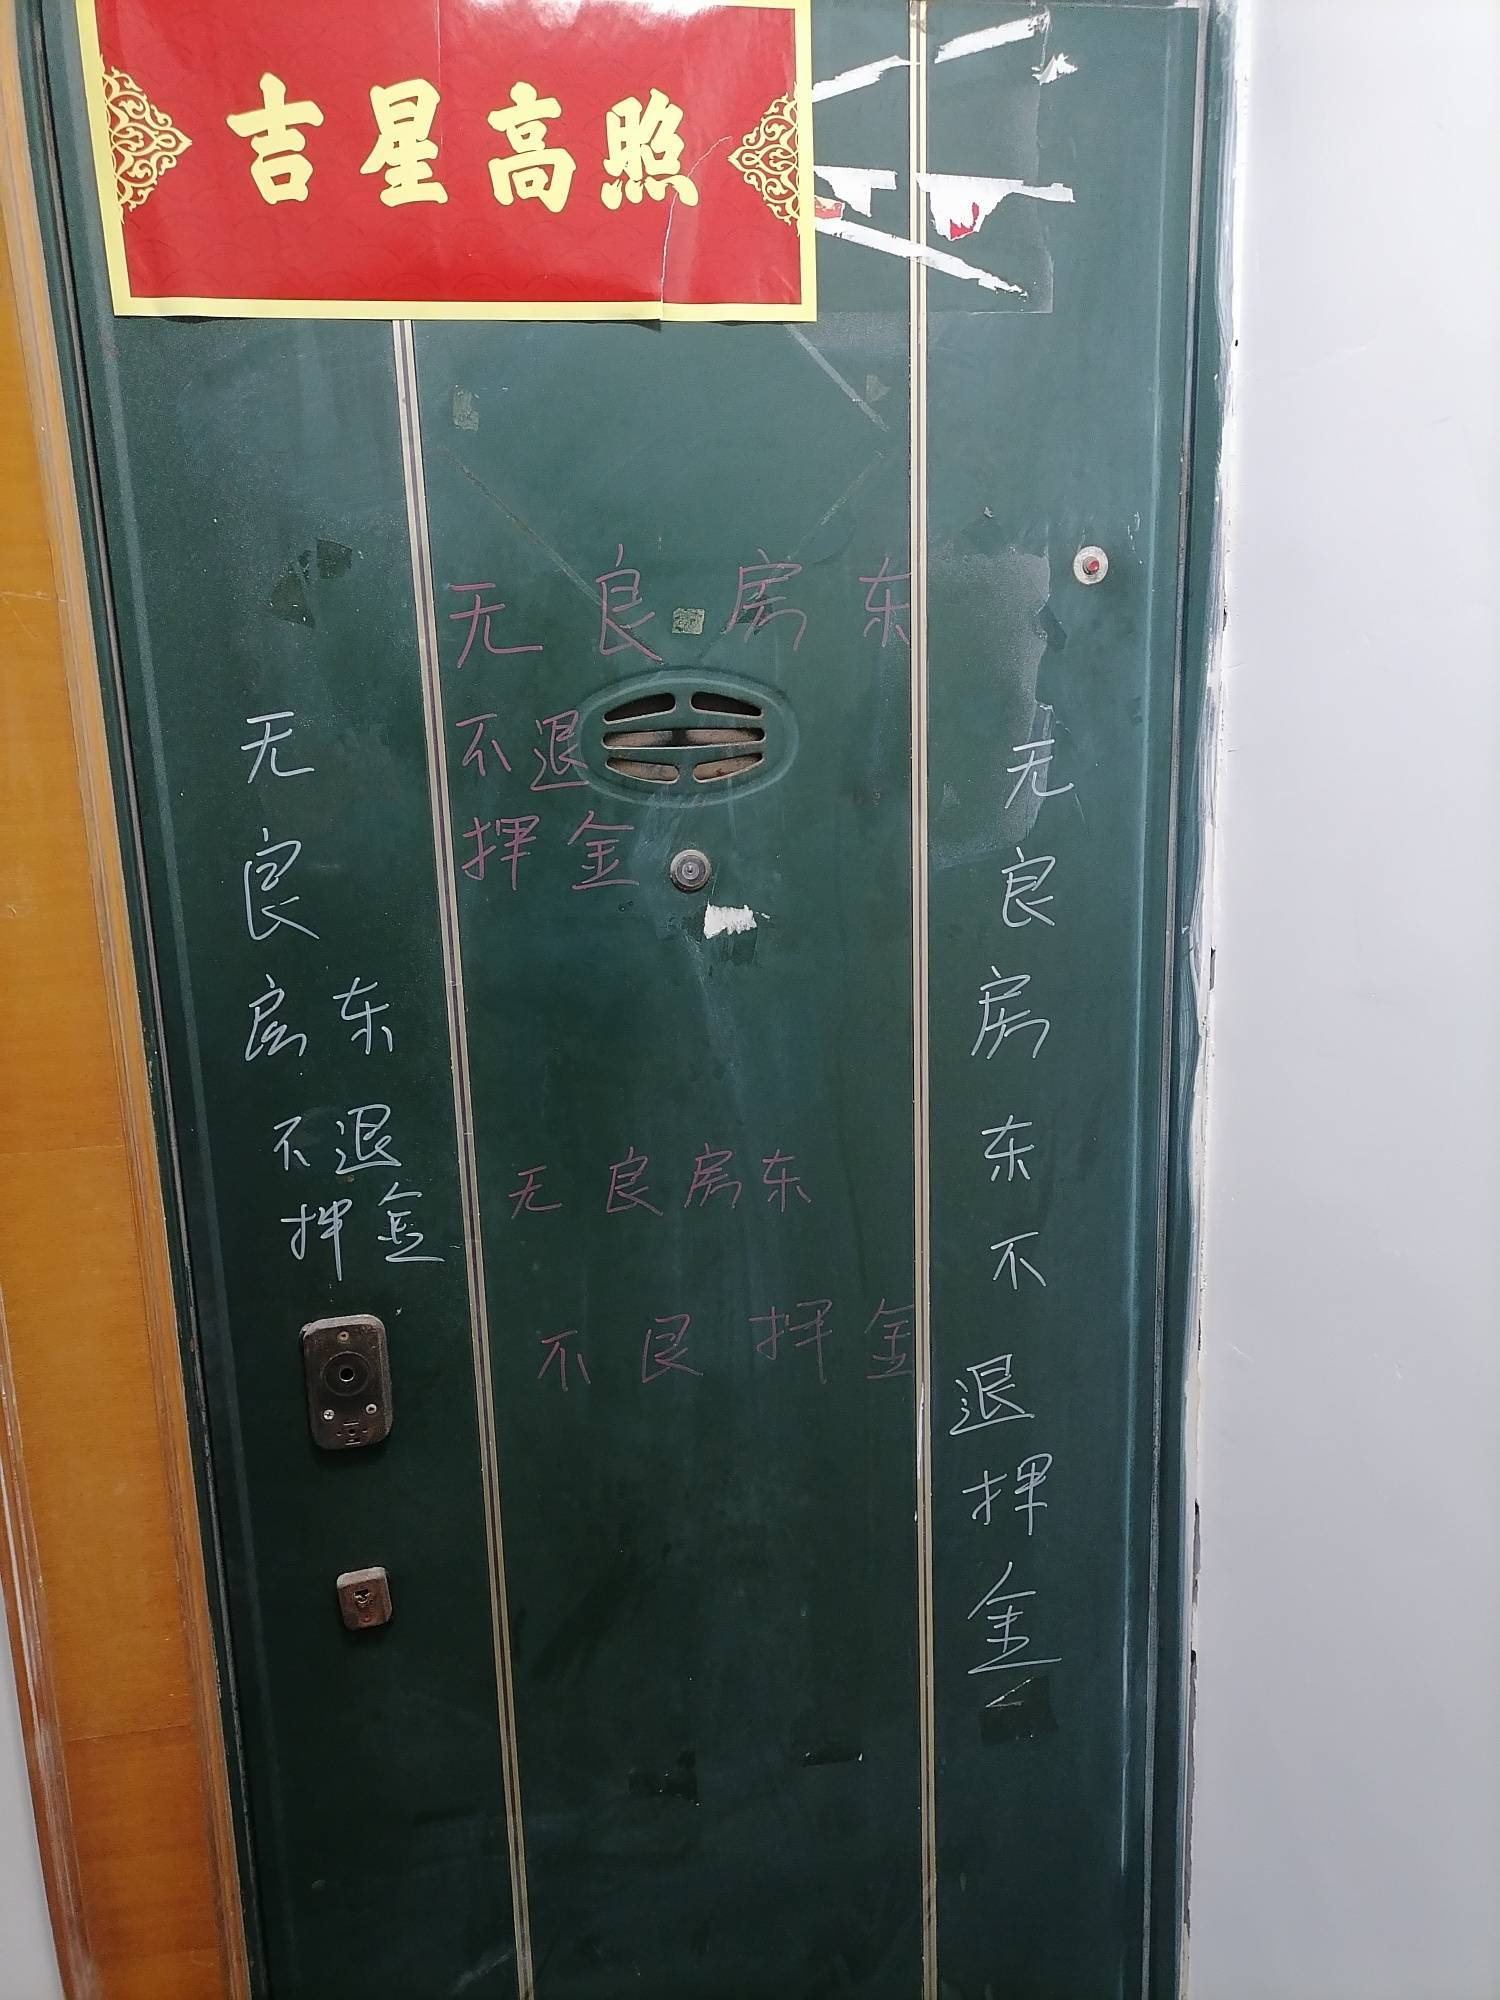 吉星高照
无良房东
不退
押金
无
良
房东
不退
押金
无良房东
不良押金
无
良
房
东
不
退
押
金